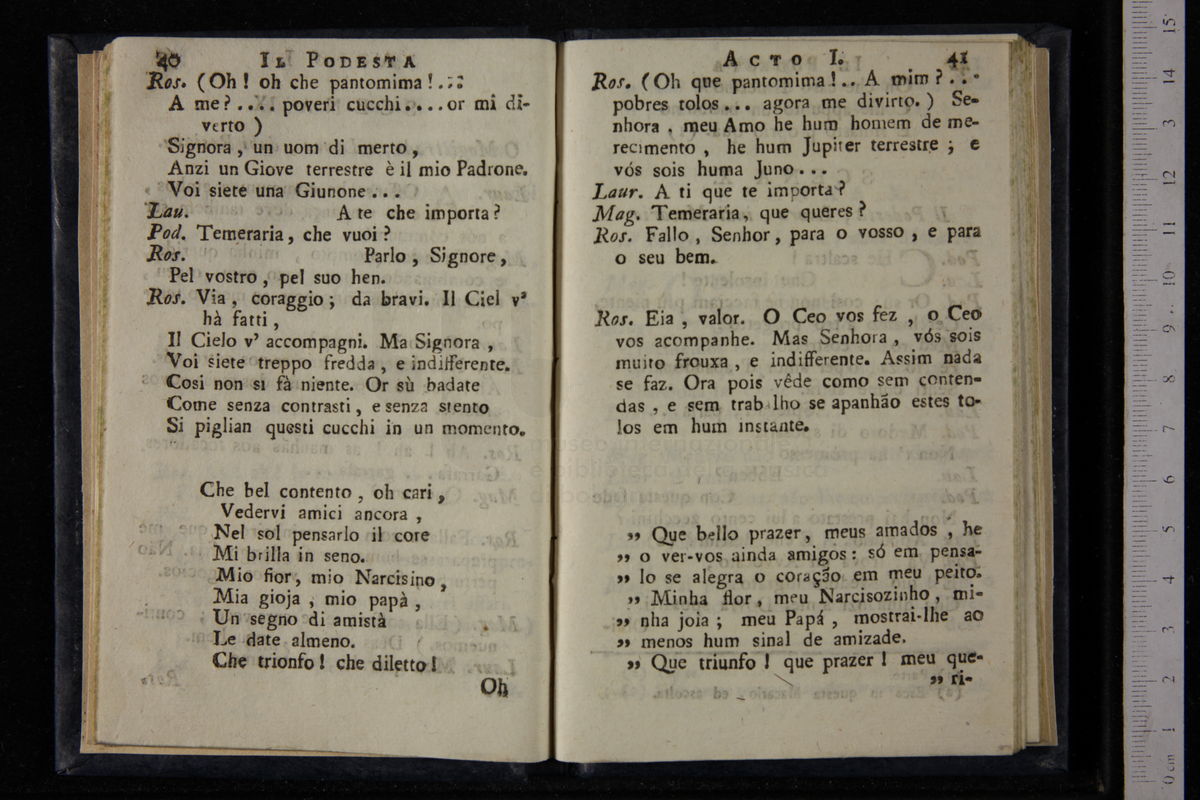 40 IL PODESTA
Ros. (Oh! oh che pantomima!...
A me?.... poveri cucchi....or mi di-
verto )
Signora, un uom di merto,
Anzi un Giove terrestre è il mio Padrone.
Voi siete una Giunone...
Lau. A te che importa?
Pod. Temeraria, che vuoi?
Ros. Parlo, Signore,
Pel vostro, pel suo hen.
Ros. Via, coraggio; da bravi. Il Ciel v'
hà fatti,
Il Cielo v' accompagni. Ma Signora,
Voi siete treppo fredda, e indifferente.
Cosi non si fà niente. Or sù badate
Come senza contrasti, e senza stento
Si piglian questi cucchi in un momento.
Che bel contento, oh cari,
Vedervi amici ancora,
Nel sol pensarlo il core
Mi brilla in seno.
Mio fior, mio Narcisino,
Mia gioja, mio papà,
Un segno di amistà
Le date almeno.
Che trionfo! che diletto!
Oh
ACTO I. 41
Ros. (Oh que pantomima!.. A mim?...
pobres tolos... agora me divirto.) Se-
nhora, meu Amo he hum homem de me-
recimento, he hum Jupiter terrestre; e
vós sois huma Juno...
Laur. A ti que te importa?
Mag. Temeraria, que queres?
Ros. Fallo, Senhor, para o vosso, e para
o seu bem.
Ros. Eia, valor. O Ceo vos fez, o Ceo
vos acompanhe. Mas Senhora, vós sois
muito frouxa, e indifferente. Assim nada
se faz. Ora pois vêde como sem conten-
das, e sem trab lho se apanhão estes to-
los em hum instante.
„ Que bello prazer, meus amados, he
„ o ver-vos ainda amigos: só em pensa-
„ lo se alegra o coração em meu peito.
„ Minha flor, meu Narcisozinho, mi-
„ nha joia; meu Papá, mostrai-lhe ao
„ menos hum sinal de amizade.
„ Que triunfo! que prazer! meu que-
„ ri-